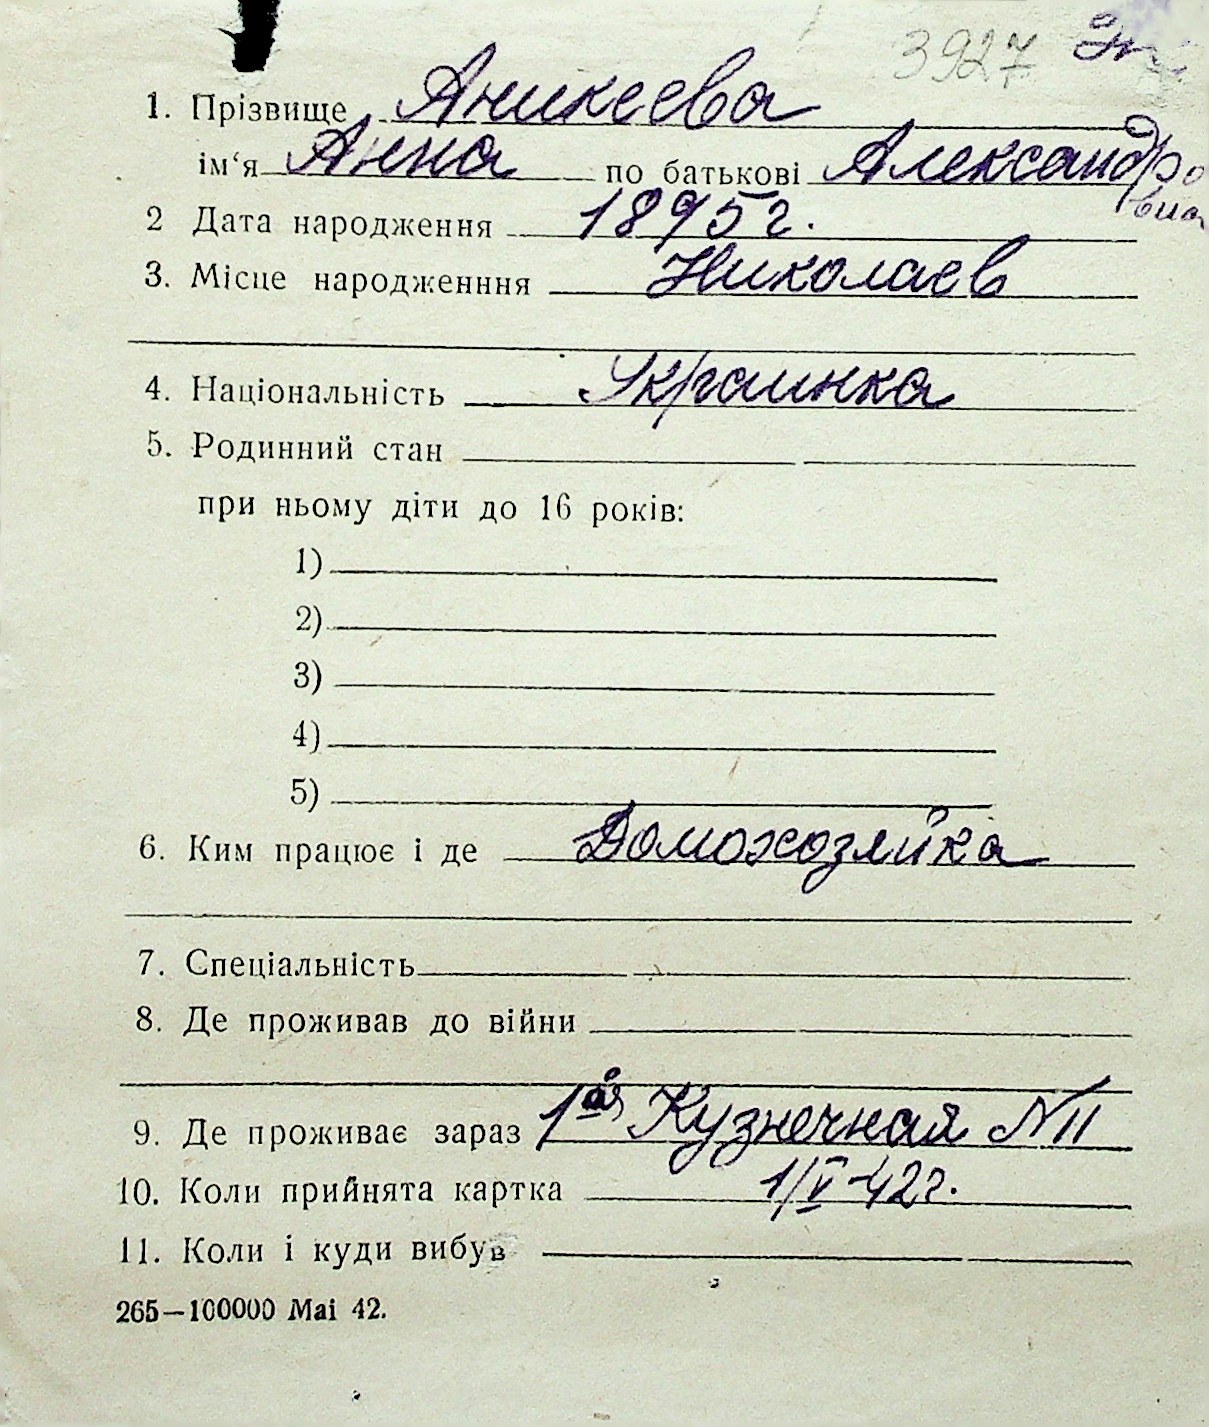 3927
1. Прізвище Аникеева
ім‘я Анна по батькові Александро
вна
2 Дата народження 1895 г.
3. Місце народженння Николаев
4. Національність Украинка
5. Родинний стан
при ньому діти до 16 років:
1)
2)
3)
4)
5)
6. Ким працює і де Домохозяйка
7. Спеціальність
8. Де проживав до війни
9. Де проживає зараз 1ая Кузнечная N 11
10. Коли прийнята картка 1/V-42г.
11. Коли і куди вибув
265—100000 Mai 42.